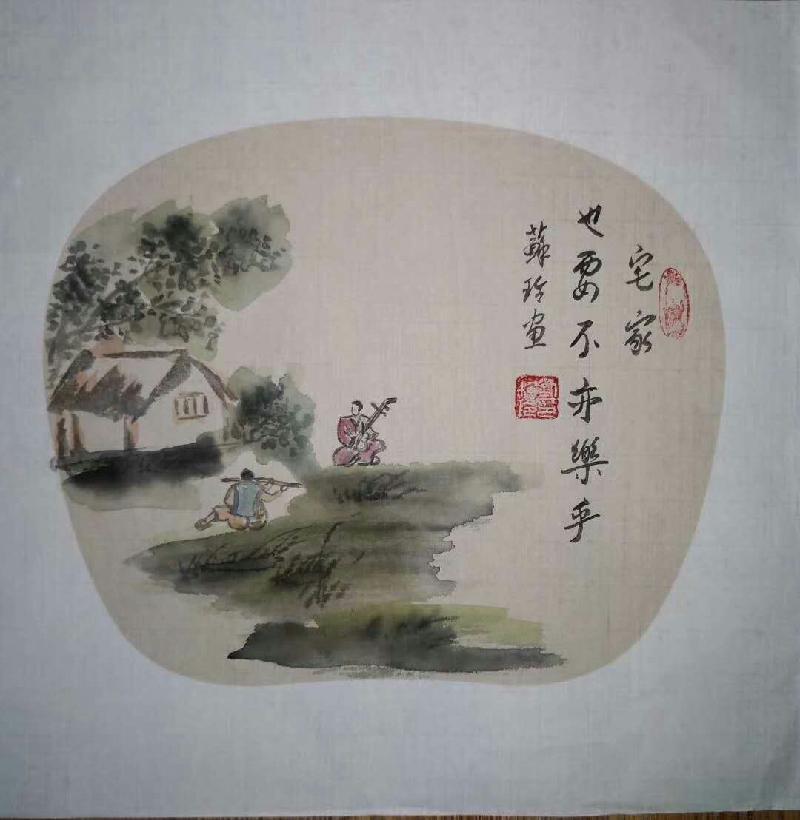 宅家
也要不亦樂乎
蘇玲画